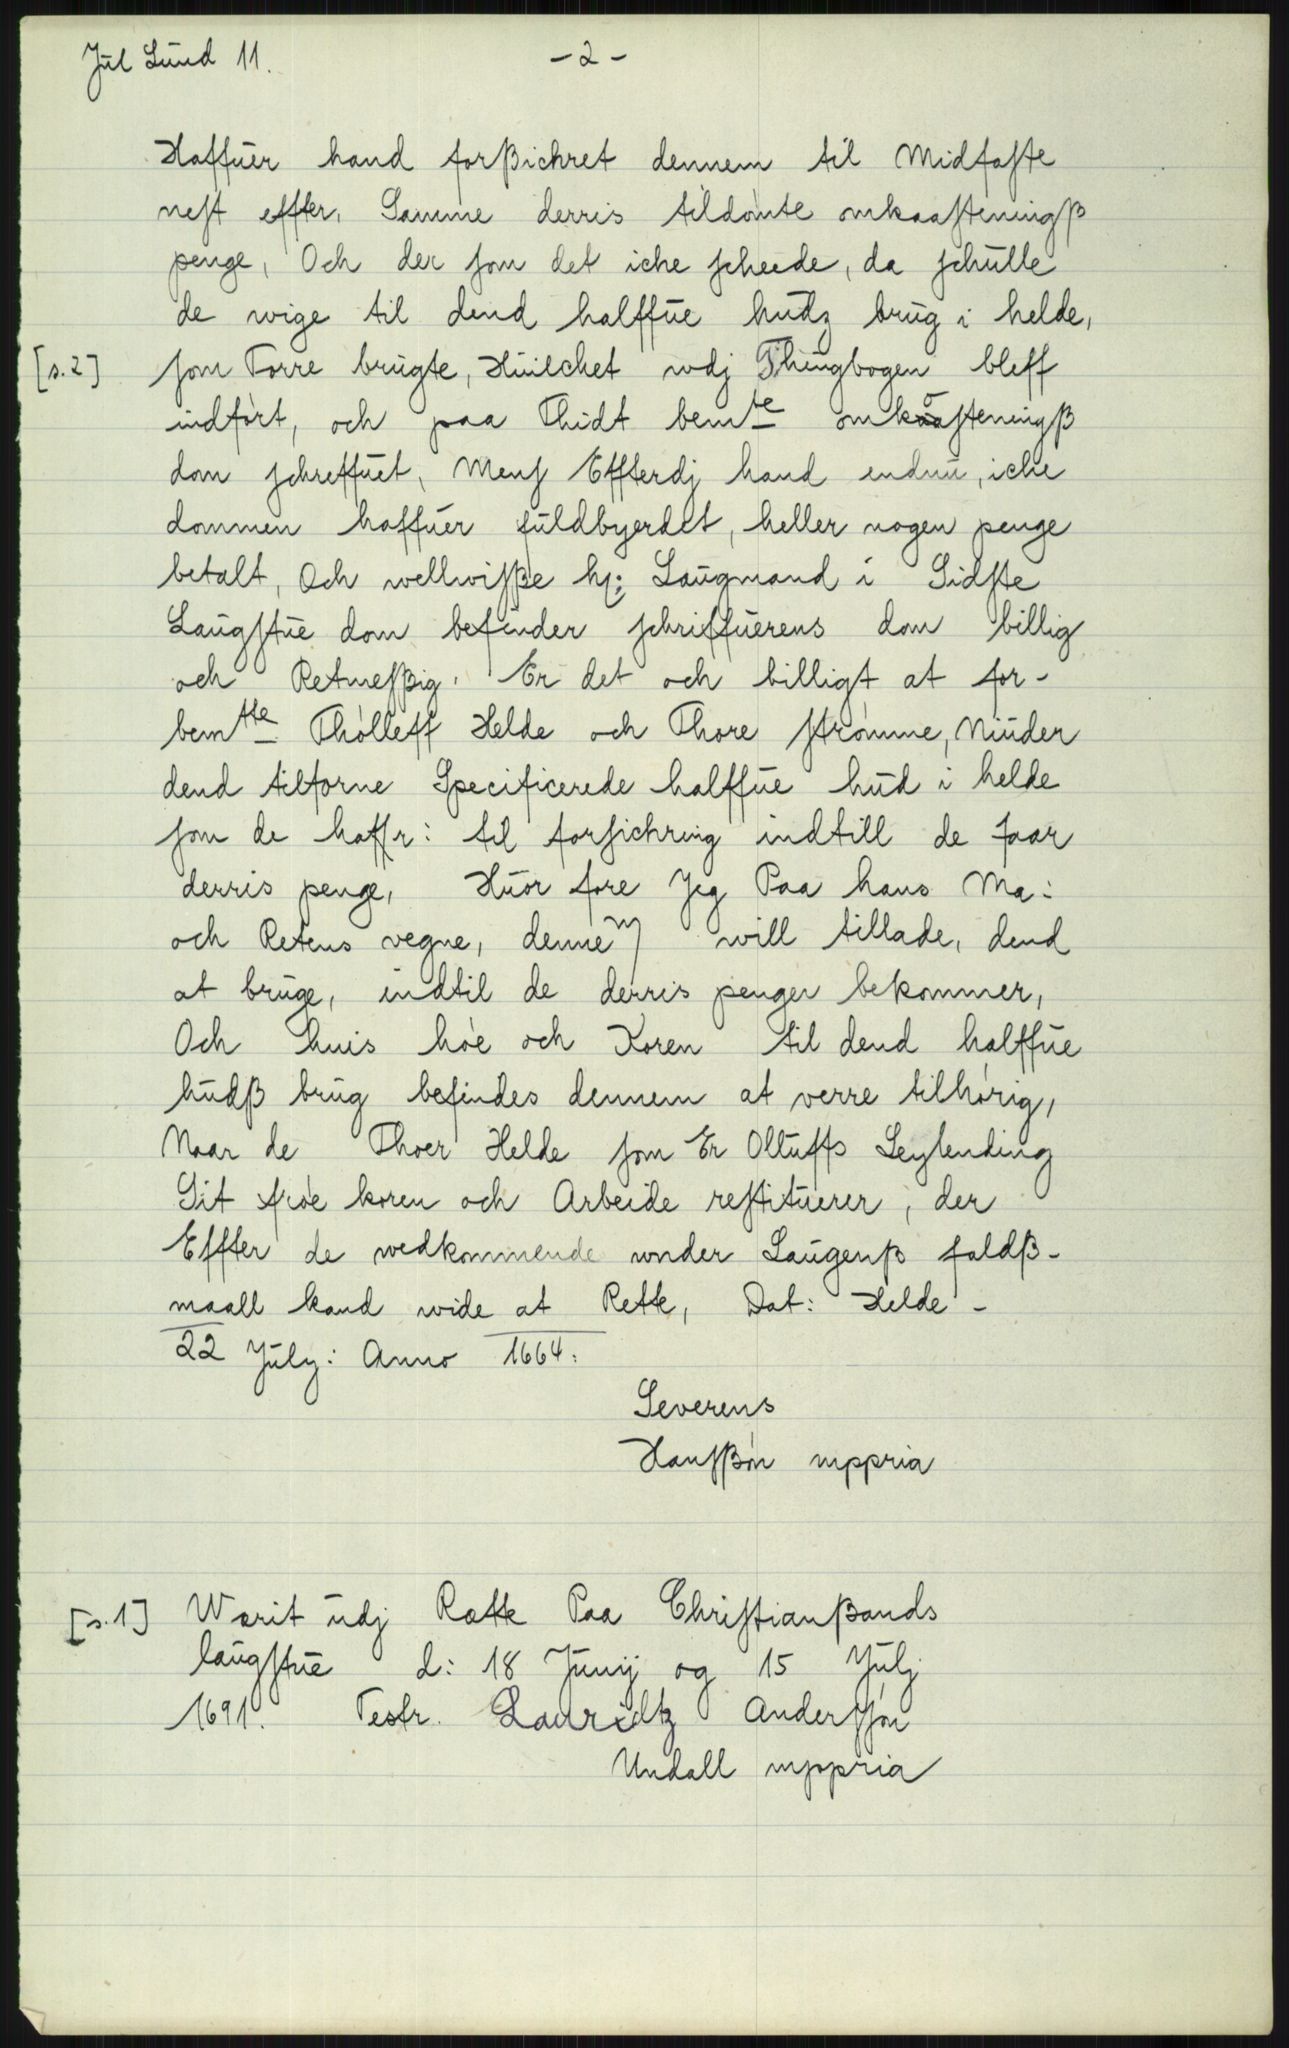 Jul Lund 11. - 2 -
Haffuer hand forßichret dennem til Midfaste
nest effter, Samme derris tildömte omkaasteningß
penge, Och der som det iche scheede, da schulle
de wige til dend halffue hudz brug i helde,
[s.2] som Torre brugte, Huilchet wdj Thingbogen bleff
indført, och paa Thidt bemte omkaasteningß
dom schreffuet, Mens Effterdj hand endnu, iche
dommen haffuer fuldbyerdet, heller nogen penge
betalt, Och wellwisße hr: Laugmand i Sidste
Laugstue dom befinder schriffuerens dom billig
och Retmesßig. Er det och billigt at for-
bemtte Thólleff Helde och Thore Strömme, Niuder
dend tilforne Specificerede halffue hud i helde
som de haffr: til forsichring indtill de faar
derris penge, Huor fore Jeg Paa hans Ma:
och Retens vegne, dennem will tillade, dend
at bruge, indtil de derris penger bekommer,
Och huis hóe och Koren til dend halffue
hudß brug befindes dennem at verre tilhórig,
Naar de Thoer Helde som Er Olluffs Leylending
Sit fróe koren och Arbeide restituerer, der
Effter de wedkommende wnder Laugenß faldß-
maall kand wide at Rette, Dat: Helde -
22 July: Anno 1664:
Severens
Hansßón mppria
[s.1] Wærit udj Rætte Paa Christianßands
laugstue d: 18 Junij og 15 Julj
1691. Testr. Lauridtz Anderssón
Undall mppria